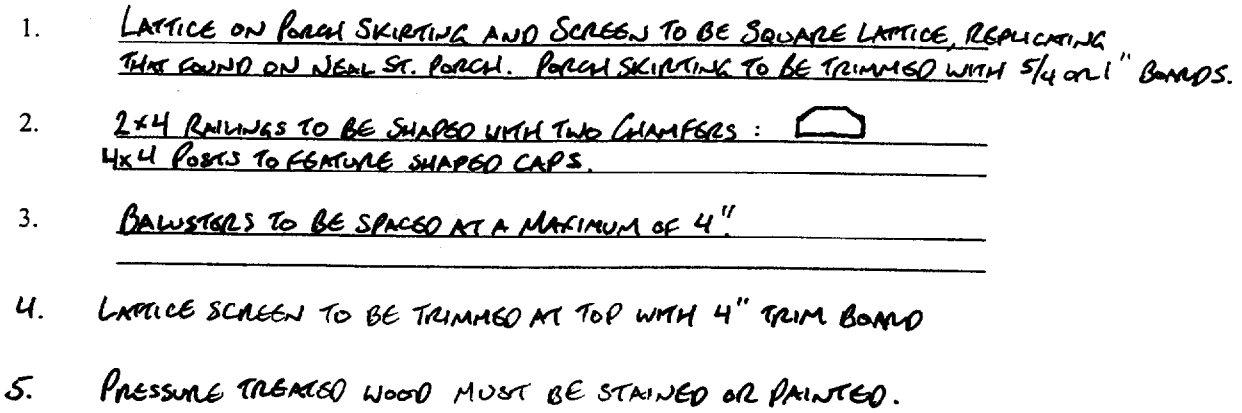 1. LATTICE ON PORCH SKIRTING AND SCREEN TO BE SQUARE LATTICE, REPLICATING
THAT FOUND ON NEAL ST. PORCH. PORCH SKIRTING TO BE TRIMMED WITH 5/4 OR 1" BOARDS.
2. 2x4 RAILINGS TO BE SHAPED WITH TWO CHAMFERS :
4x4 POSTS TO FEATURE SHAPED CAPS.
3. BALUSTERS TO BE SPACED AT A MAXIMUM OF 4".
4. LATTICE SCREEN TO BE TRIMMED AT TOP WITH 4" TRIM BOARD
5. PRESSURE TREATED WOOD MUST BE STAINED OR PAINTED.